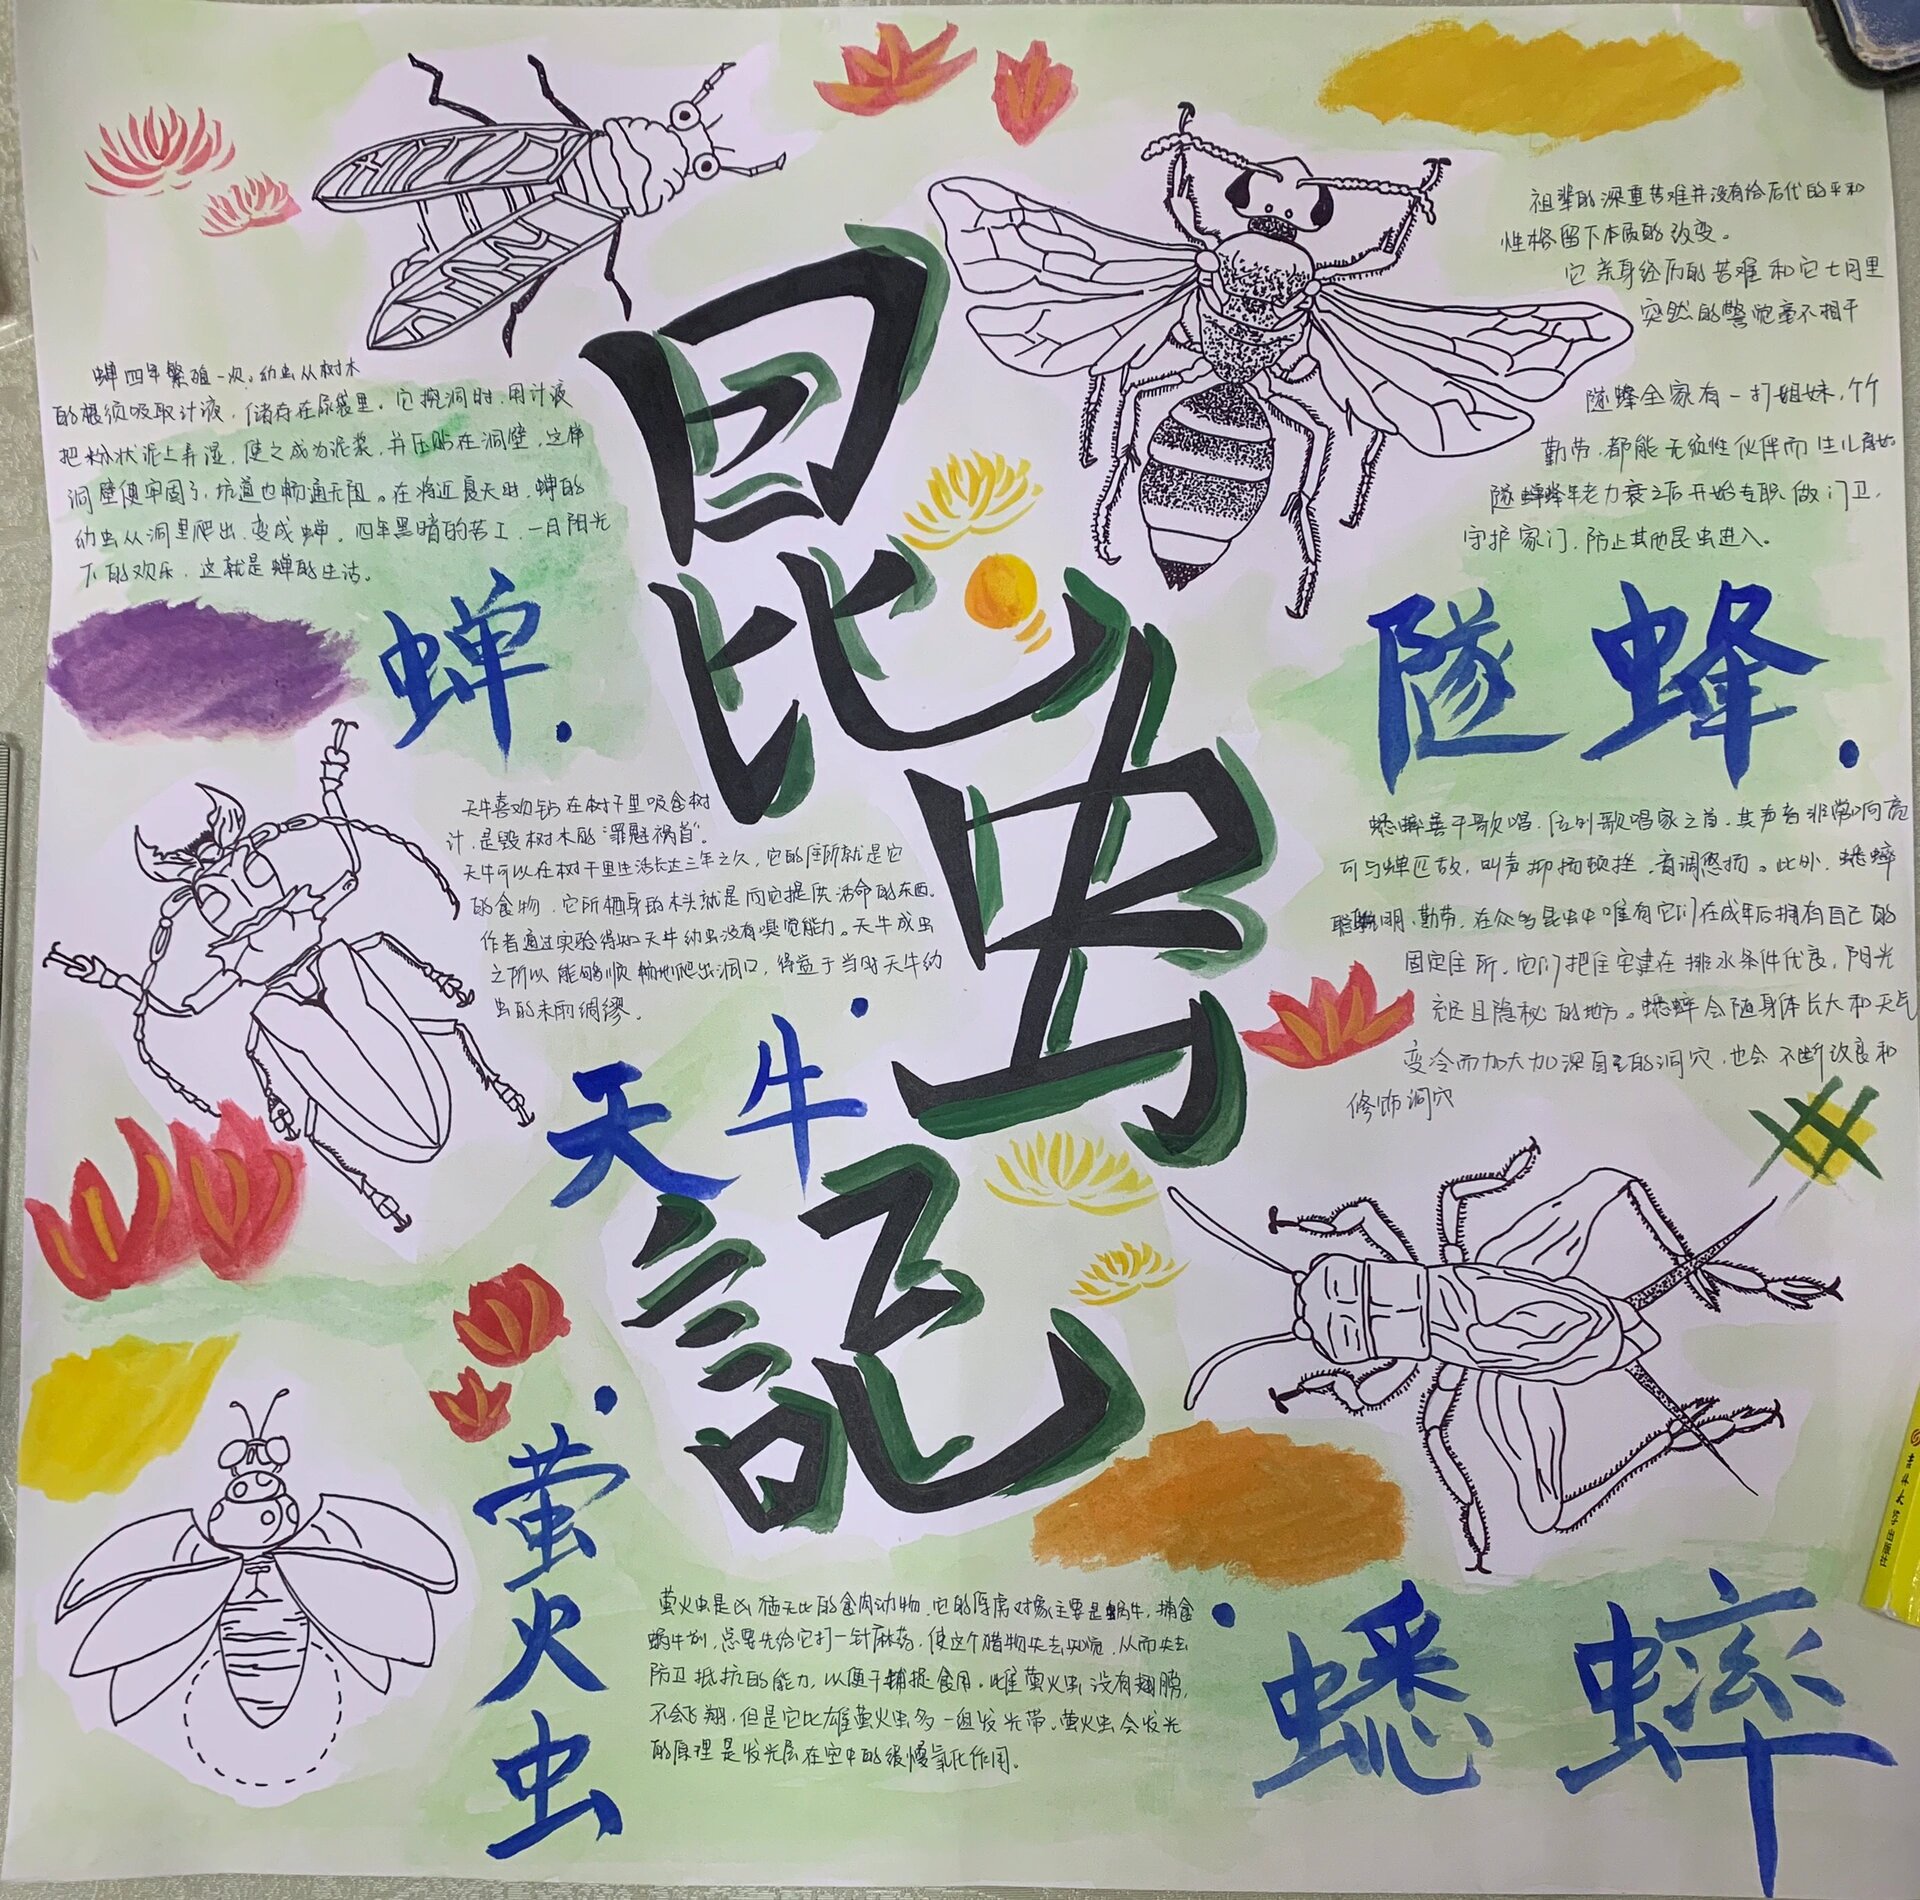 昆虫記
蝉四年繁殖一次。幼虫从树木
的根须吸取汁液,储存在尿袋里。它挖洞时,用汁液
把粉状泥土弄湿,使之成为泥浆,并压贴在洞壁,这样
洞壁便牢固了,坑道也畅通无阻。在将近夏天时,蝉的
幼虫从洞里爬出,变成蝉。四年黑暗的苦工,一月阳光
下的欢乐,这就是蝉的生活。
蝉
祖辈的深重苦难并没有给后代的平和
性格留下本质的改变。
它亲身经历的苦难和它七月里
突然的警觉毫不相干
隧蜂全家有一打姐妹,个个
勤劳,都能无须性伙伴而生儿育女
隧蜂年老力衰之后开始专职做门卫,
守护家门,防止其他昆虫进入。
隧蜂
天牛喜欢钻在树干里吸食树
汁,是毁树木的“罪魁祸首”。
天牛可以在树干里生活长达三年之久,它的住所就是它
的食物,它所栖身的木头就是向它提供活命的东西。
作者通过实验得知天牛幼虫没有嗅觉能力。天牛成虫
之所以能够顺畅地爬出洞口,得益于当时天牛幼
虫的未雨绸缪。
天牛
蟋蟀善于歌唱,位列歌唱家之首,其声音非常响亮
可与蝉匹敌,叫声抑扬顿挫,音调悠扬。此外,蟋蟀
聪明,勤劳,在众多昆虫中唯有它们在成年后拥有自己的
固定住所,它们把住宅建在排水条件优良,阳光
充足且隐秘的地方。蟋蟀会随身体长大和天气
变冷而加大加深自己的洞穴,也会不断改良和
修饰洞穴
蟋蟀
萤火虫
萤火虫是凶猛无比的食肉动物,它的俘虏对象主要是蜗牛,捕食
蜗牛前,总要先给它打一针麻药,使这个猎物失去知觉,从而失去
防卫抵抗的能力,以便于捕捉食用。雌萤火虫没有翅膀,
不会飞翔,但是它比雄萤火虫多一组发光带。萤火虫会发光
的原理是发光层在空中的缓慢氧化作用。